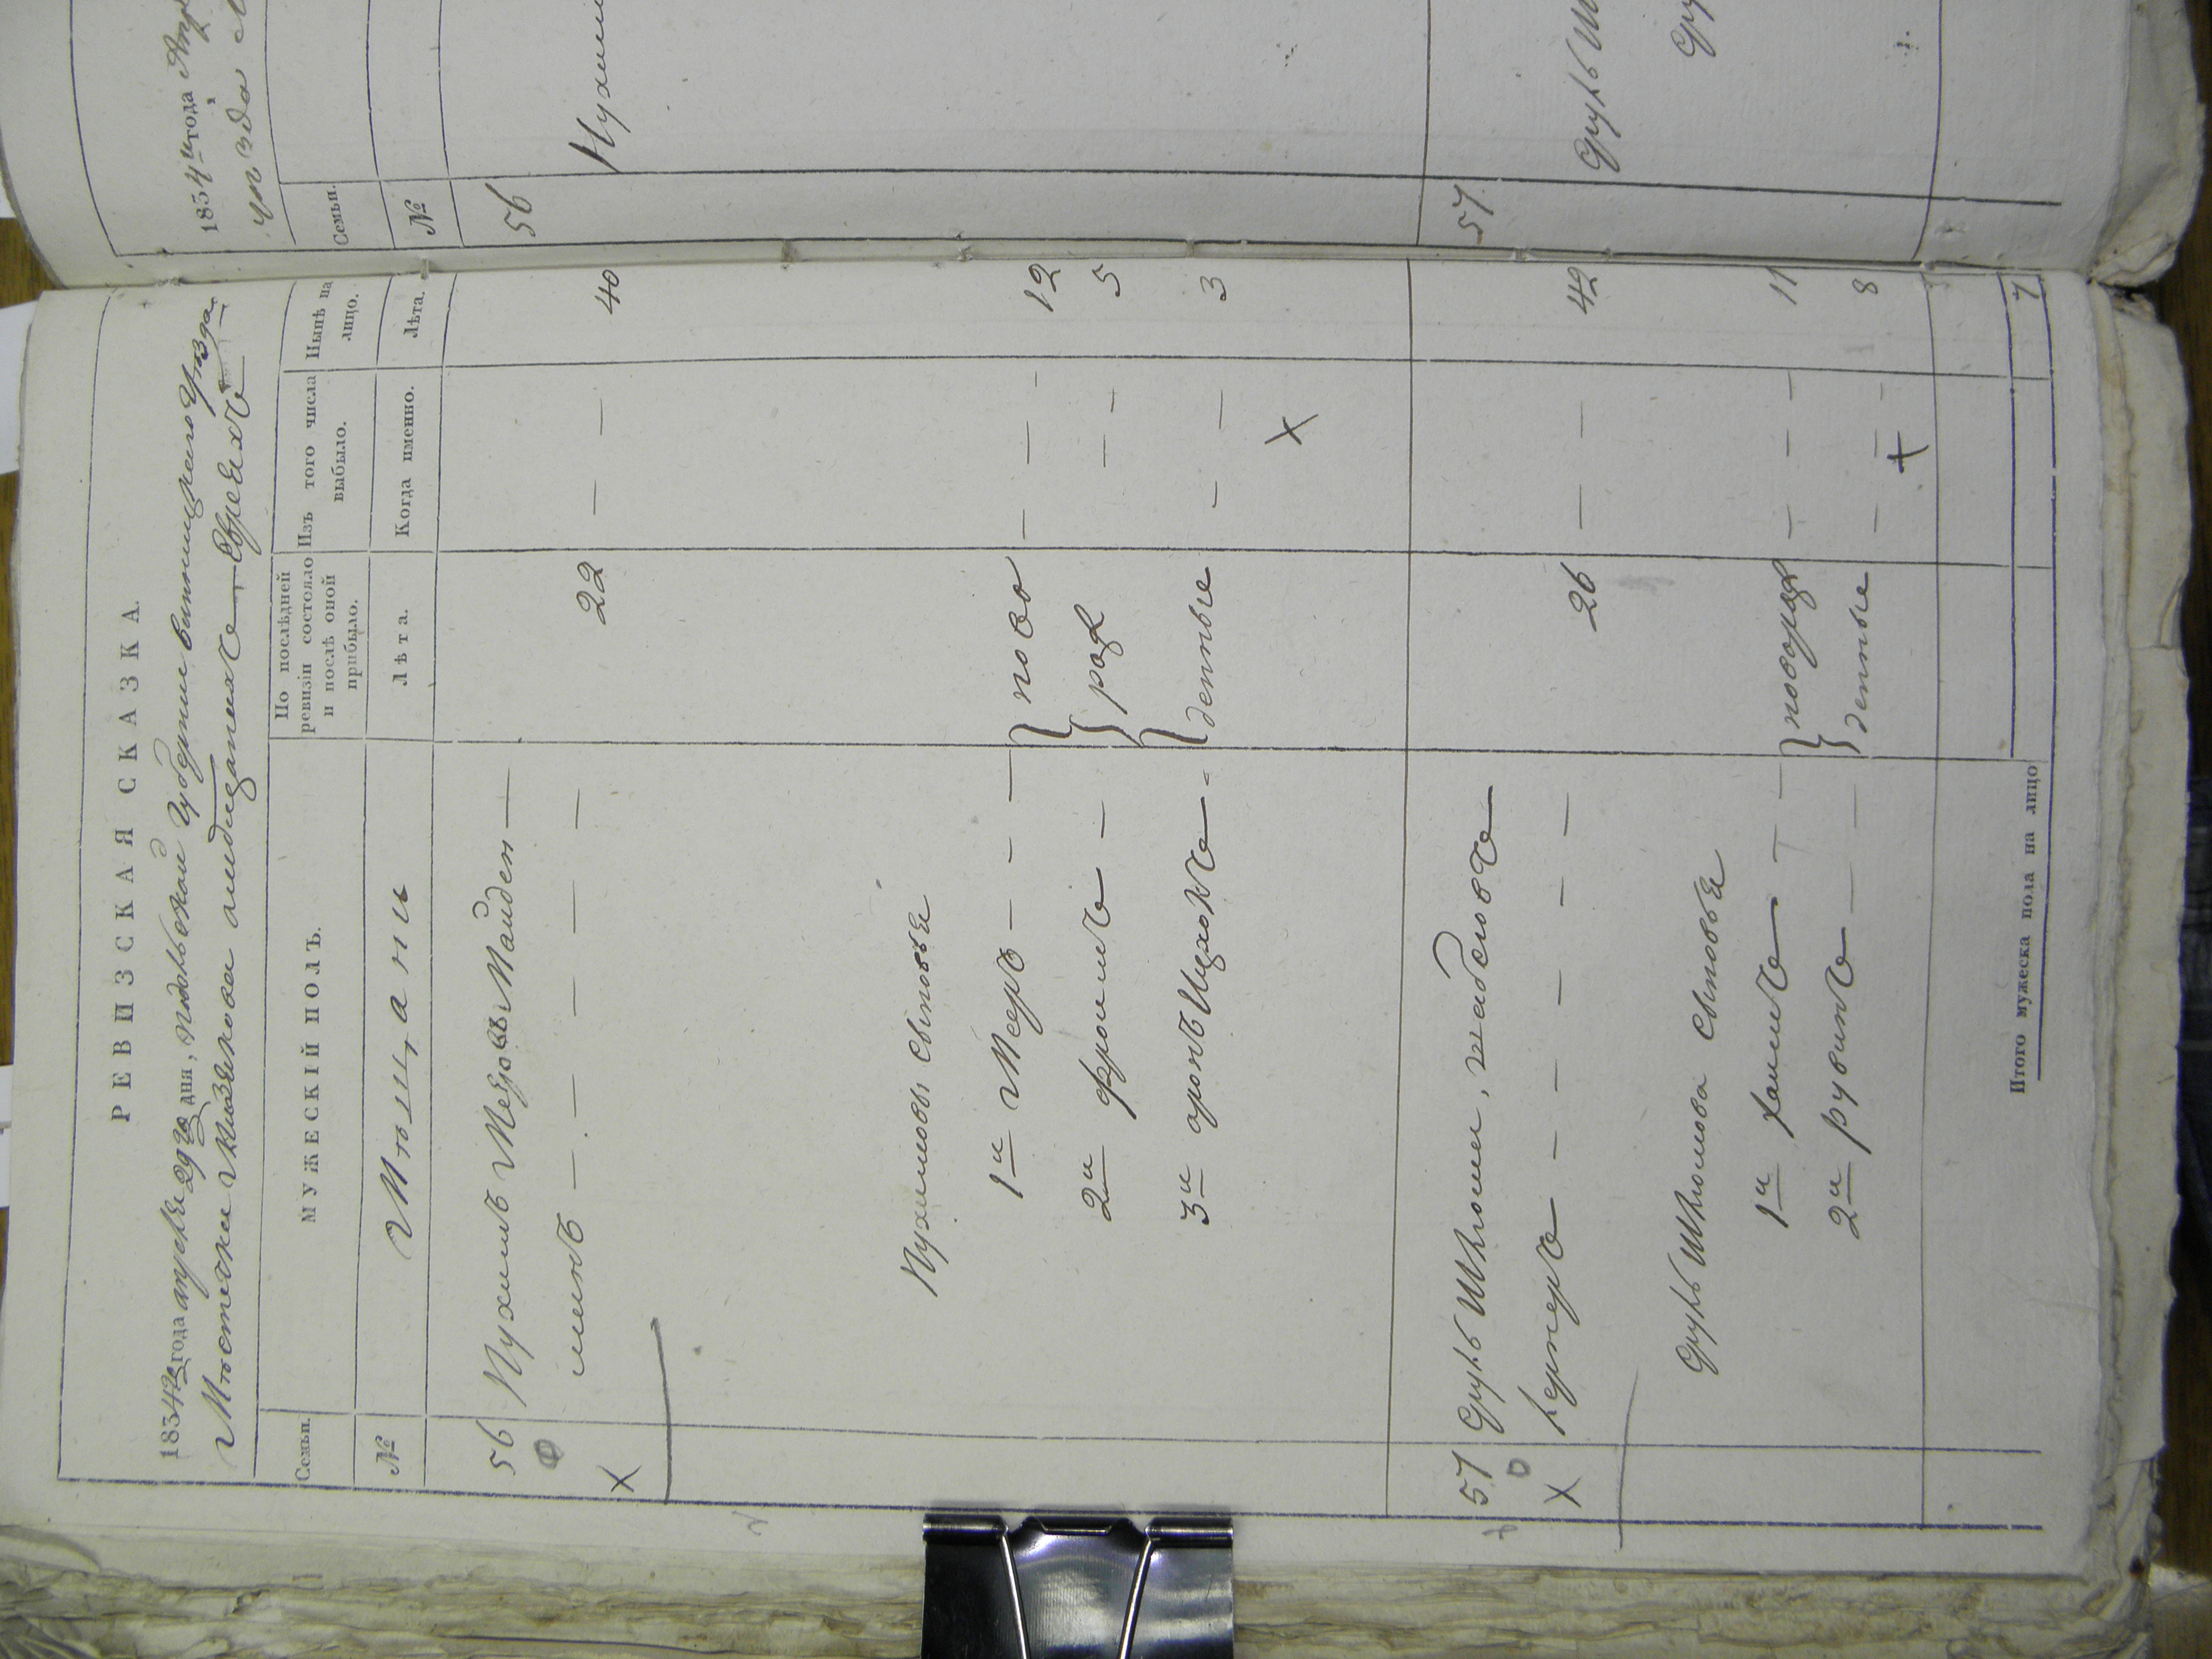 РЕВИЗСКАЯ СКАЗКА.
1834го года апреля 29го дня, Подольской Губернии Винницкого Уезда
Местечка
Евреяхъ
Семьи.
МУЖЕСКІЙ ПОЛЪ.
По послѣдней ревизіи состояло и послѣ оной прибыло.
Изъ того числа выбыло.
Нынѣ на лицо.
№
Мѣщани
Лѣта.
Когда именно.
Лѣта.
56 Нухимъ Мееровъ Майден
манъ — — — — — 22 — — 40
X
Нухимовы сыновья
1й Мееръ — — — ново — — — 12
2й Фроимъ — рож — — 5
3й аронъ Ицхокъ — денные — — 3
X
57 Сруль Шлиомы
26 — — 42
X
Сруль Шлиомова сыновья
1й Хаимъ — — новорож — — — 11
2й рувинъ — денные — — — 8
X
Итого мужеска пола на лицо 7
1834 года
уезда
Семьи.
№
56
Нухим
57
Сруль Ш
Сру